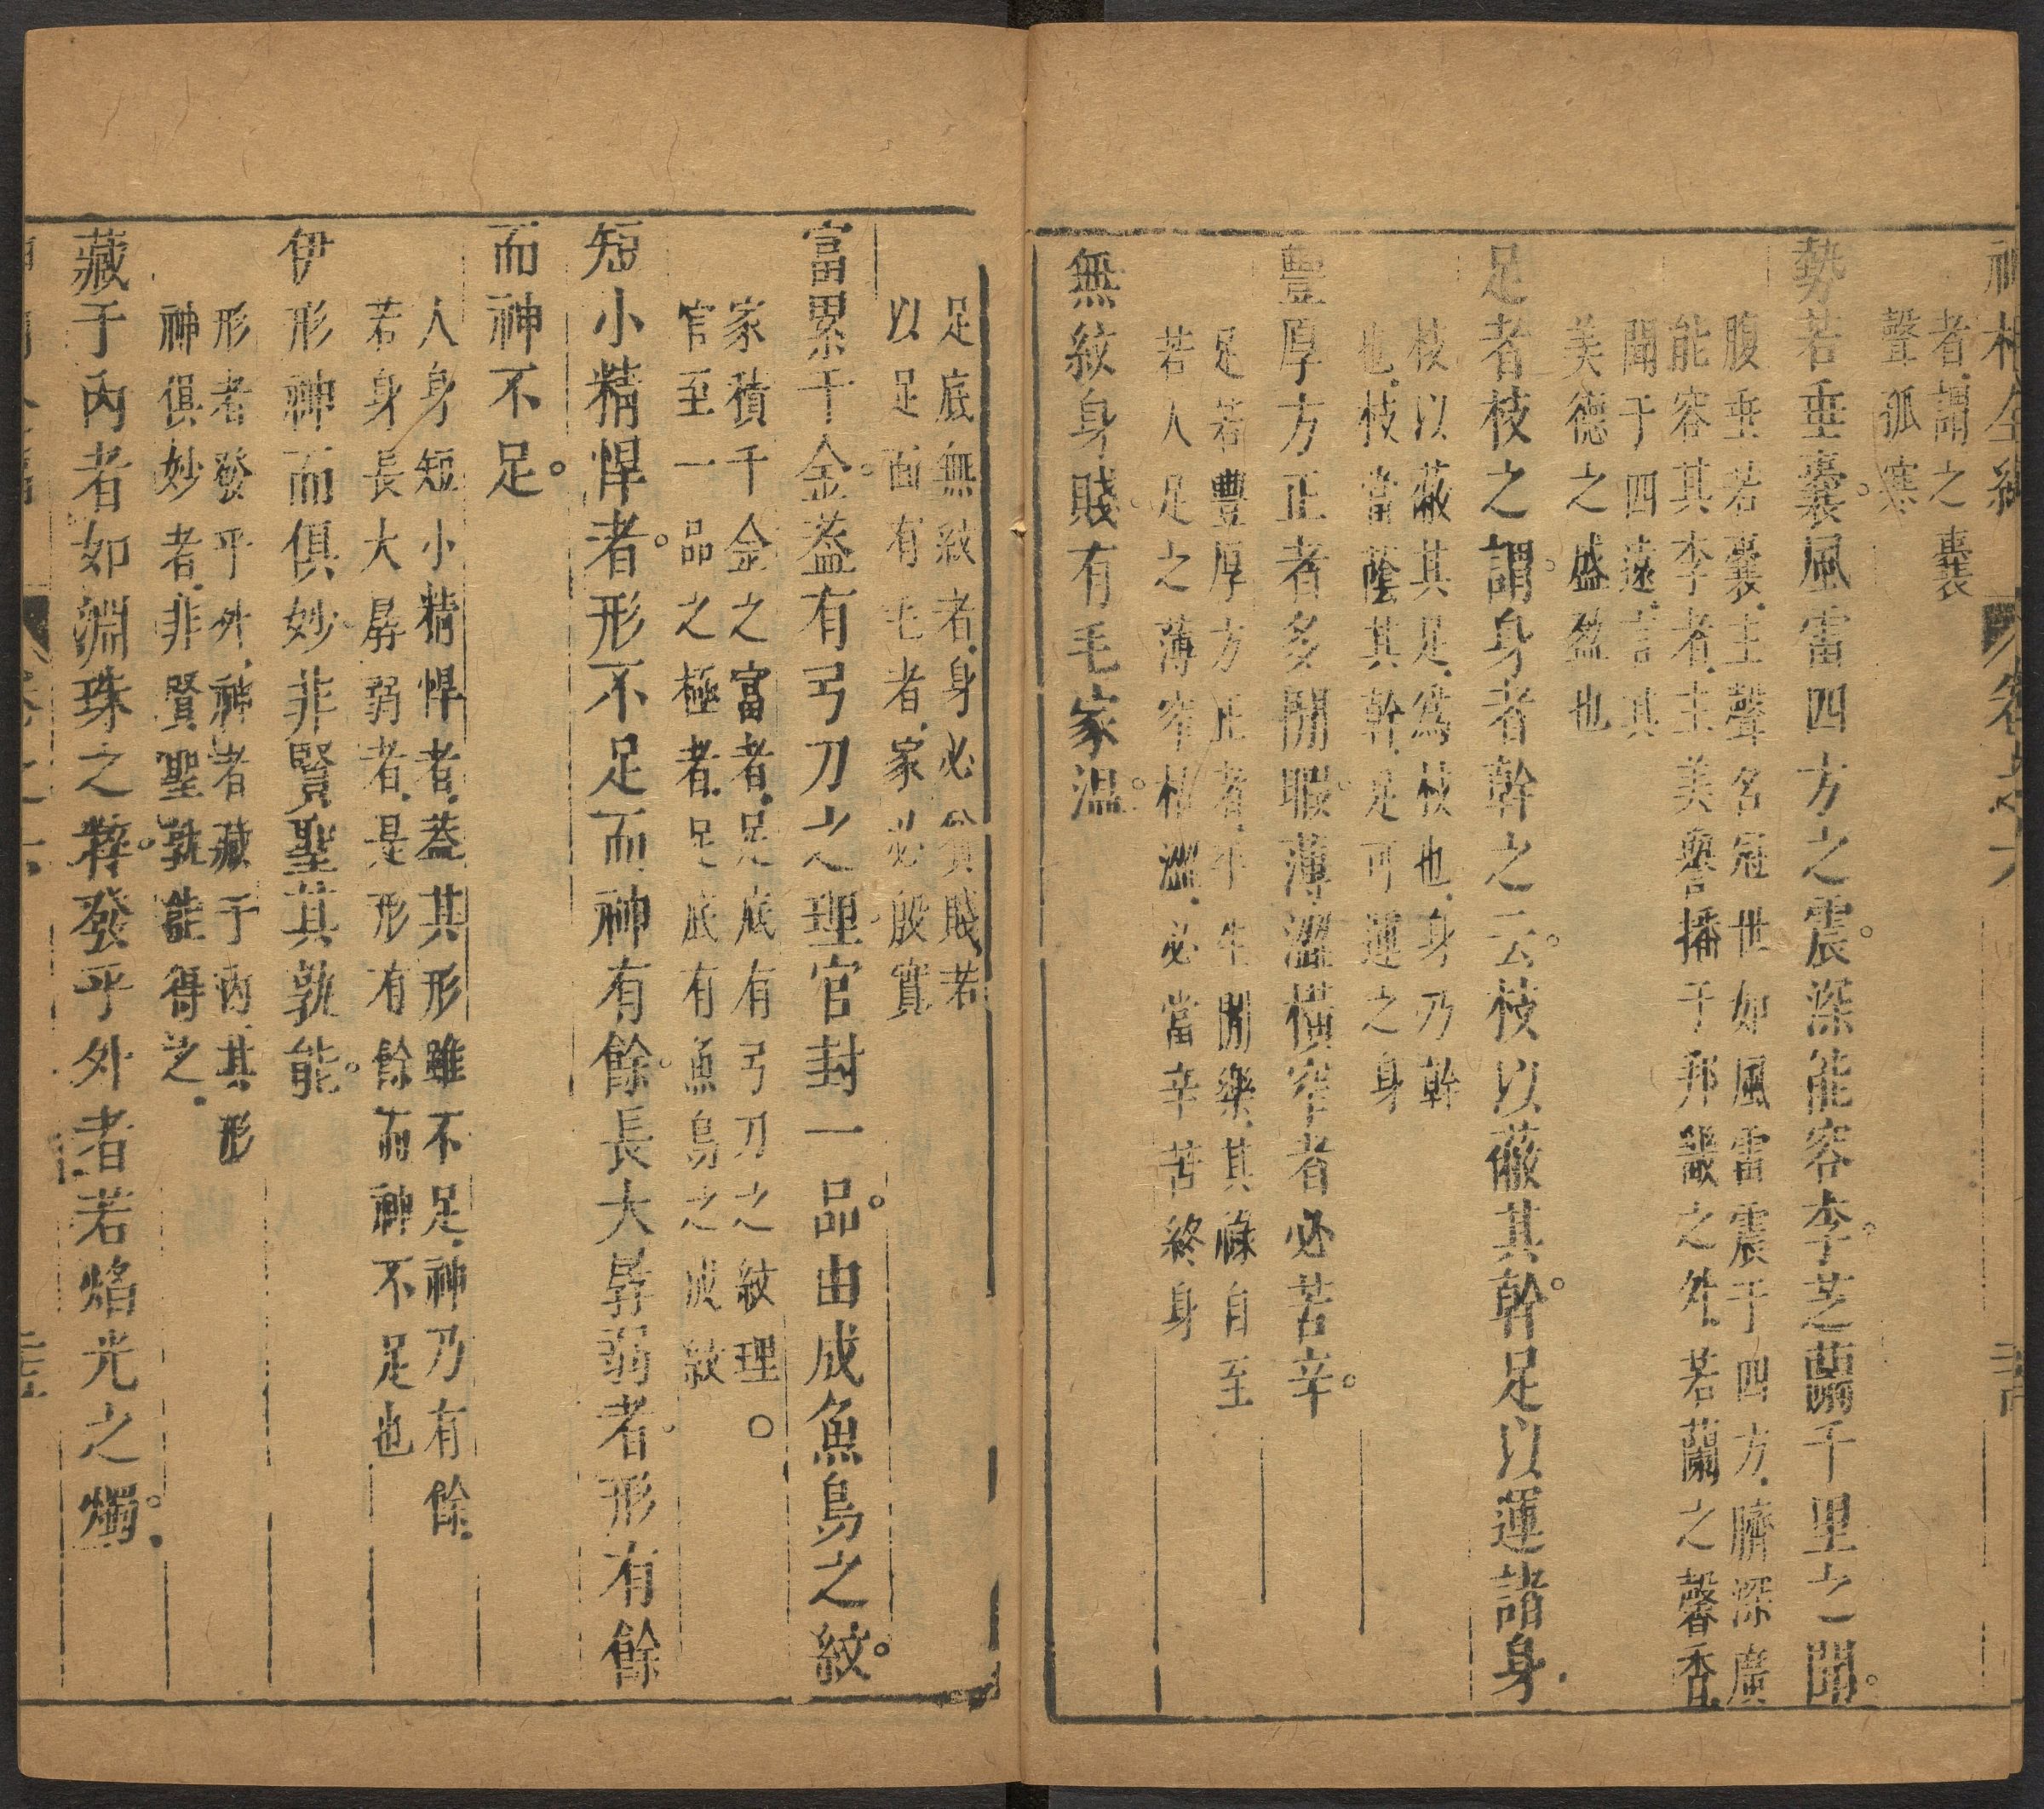 神相全編 卷之六
者謂之囊
聲孤寒
勢若垂囊風雷四方之震深能容李芝蘭千里之聞
腹垂若囊主聲名冠世如風雷震于四方臍深廣
能容其李者主美譽播于邦畿之外若蘭之馨香
聞于四遠言其
美德之盛盈也
足者枝之謂身者幹之云枝以蔽其幹足以運諸身
枝以蔽其足為枝也身乃幹
也枝當蔭其幹足可運之身
豐厚方正者多閒暇薄澀橫窄者必苦辛
足若豐厚方正者平生閒樂其祿自至
若人足之薄窄枯澀必當辛苦終身
無紋身賤有毛家温
足底無紋者身必貧賤若
以足面有毛者家必殷實
富累千金蓋有弓刀之理官封一品由成魚鳥之紋
家積千金之富者足底有弓刀之紋理
官至一品之極者足底有魚鳥之成紋
短小精悍者形不足而神有餘長大孱弱者形有餘
而神不足
人身短小精悍者蓋其形雖不足神乃有餘
若身長大孱弱者是形有餘而神不足也
伊形神而俱妙非賢聖其孰能
形者發乎外神者藏于內其形
神俱妙者非賢聖孰能得之
藏于內者如淵珠之粹發乎外者若焰光之燭